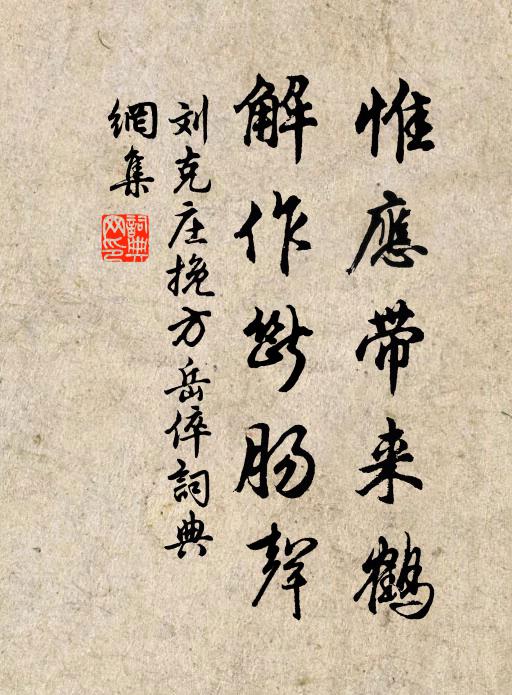 惟應帶来鶴
解作斷肠聲
刘克庄挽方岳倅詞典
網集
詞典网印